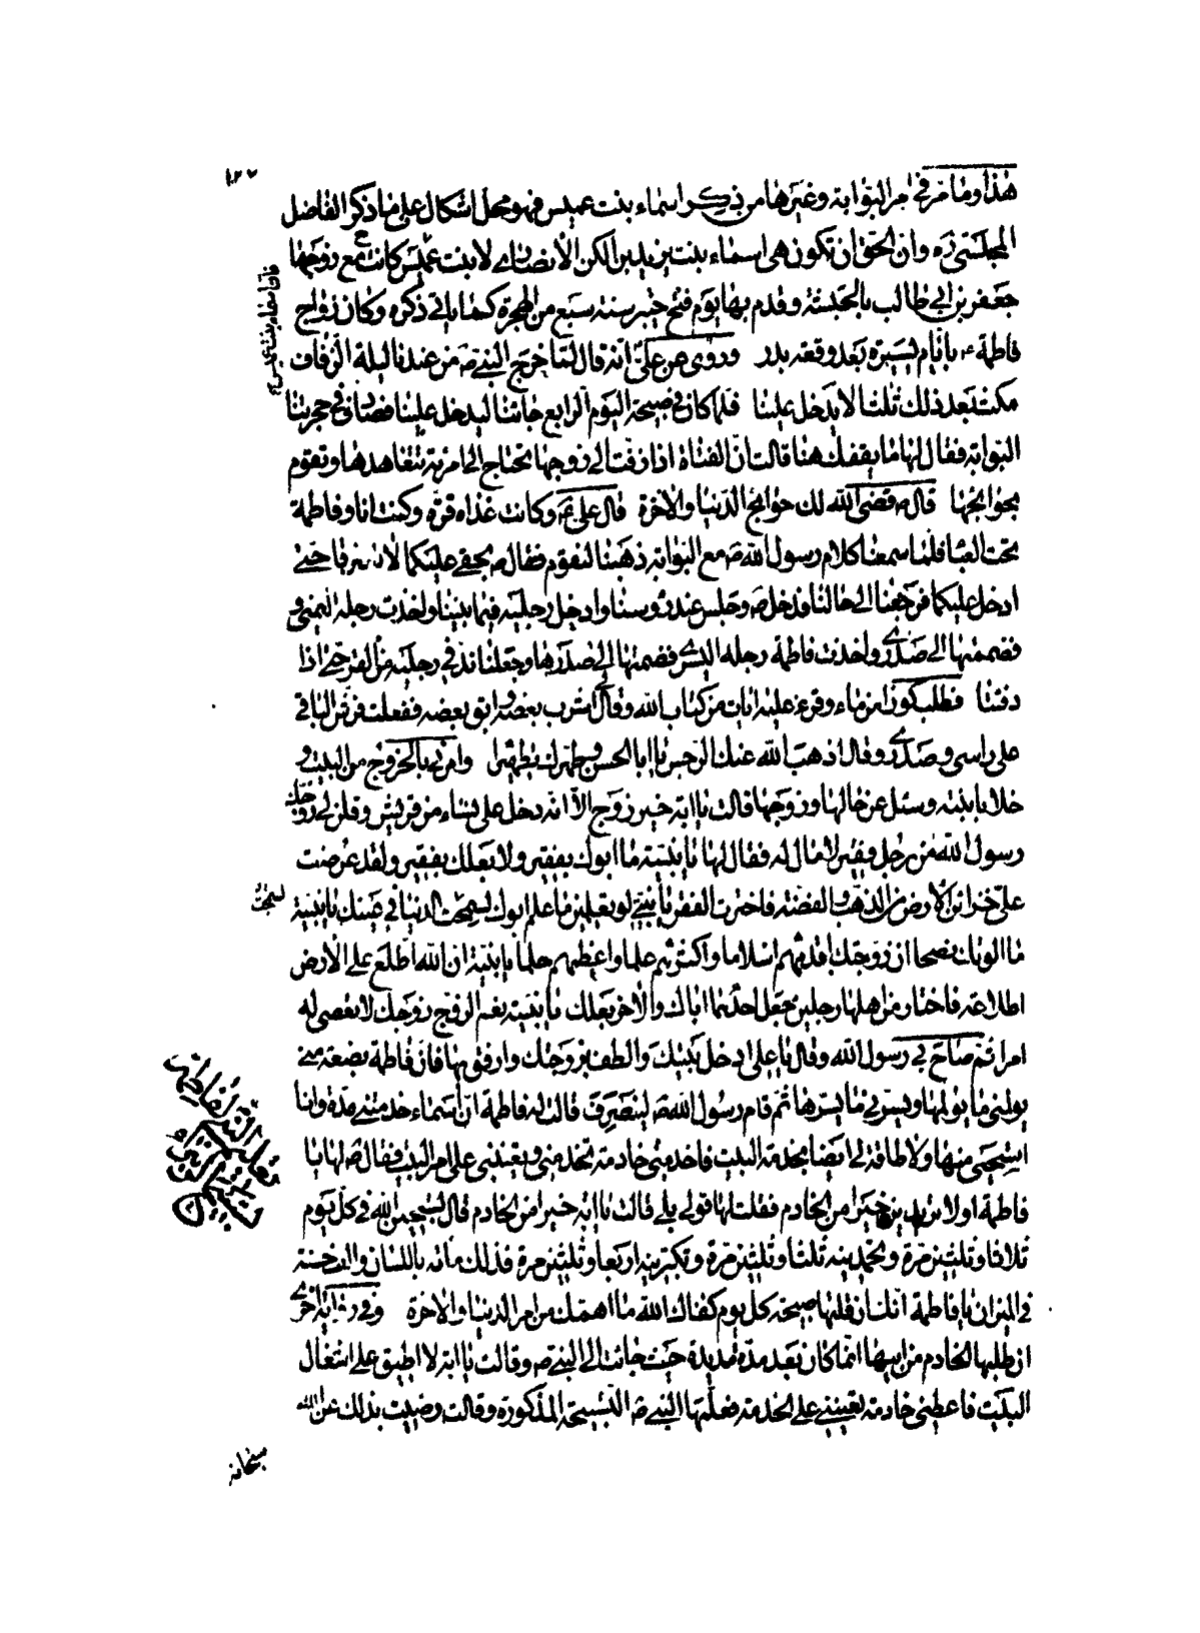 ١٢٧
هذا وما مر في امر البوابة وغيرها من ذكر اسماء بنت عميس فهو محل اشكال على ما ذكر الفاضل
المجلسي ره وان الحق ان تكون هي اسماء بنت يزيد بن السكن الأنصاري لا بنت عميس كانت مع زوجها
فان اسماء بنت عميس
جعفر بن ابي طالب بالحبشة وقدم بها يوم فتح خيبر سنة سبع من الهجرة كما ياتي ذكره وكان زواج
فاطمة ع بايام يسيرة بعد وقعة بدر وروى عن علي انه قال لما خرج النبي ص من عندنا ليلة الزفاف
مكث بعد ذلك ثلثا لا يدخل علينا فلما كان في صبيحة اليوم الرابع جائنا ليدخل علينا فصادف في حجرتنا
البوابة فقال لها ما يقفك هنا قالت ان الفتاة اذا زفت الى زوجها تحتاج الى امرءة تتعاهدها وتقوم
بحوائجها قال ص قضى الله لك حوائج الدنيا والاخرة قال علي ع وكانت غداه قرة وكنت انا وفاطمة
تحت العبا فلما سمعنا كلام رسول الله ص مع البوابة ذهبنا لنقوم فقال ص بحقي عليكما لا حتى
ادخل عليكما فرجعنا الى حالنا فدخل ص وجلس عند رؤسنا وادخل رجليه فيما بيننا واخذت رجله اليمنى و
فضممتها الى صدري واخذت فاطمة رجله اليسرى فضمتها الى صدرها وجعلنا ندفي رجليه من القر حتى اذا
دفئنا فطلب كوزا من ماء وقرء عليه ايات من كتاب الله وقال اشرب بعضه وابق بعضه ففعلت فرش الباقي
على راسي وصدري وقال اذهب الله عنك الرجس يا ابا الحسن وطهرك تطهيرا وامرني بالخروج من البيت و
خلا بابنته وسئل عن حالها وزوجها قالت يا ابة خير زوج الا انه دخل علي نساء من قريش وقلن لي زوجك
رسول الله من رجل فقير لا مال له فقال لها يا بنية ما ابوك بفقير ولا بعلك بفقير ولقد عرضت
علي خزائن الأرض من الذهب والفضة فاخترت الفقر يا بنتي لو تعلمين ما علم ابوك لسمجت الدنيا في عينك يا بنية
لسمجت
ما الوتك نصحا ان زوجتك اقدمهم اسلاما واكثرهم علما واعظمهم حلما يا بنية ان الله اطلع على الارض
اطلاعة فاختار من اهلها رجلين فجعل احدهما اباك والاخر بعلك يا بنية نعم الزوج زوجك لا تعصي له
امرا ثم صاح بي رسول الله وقال يا علي ادخل بيتك والطف بزوجتك وارفق بها فان فاطمة بضعة مني
يولمني ما يولمها ويسرني ما يسرها ثم قام رسول الله ص لينصرف قالت له فاطمة ان اسماء خدمتني مدة وانا
استحيي منها ولا طاقة لي ايضا بخدمة البيت فاخدمني خادمة تخدمني وتعينني على امر البيت فقال ص لها يا
تعليم النبي لفاطمة
فاطمة اولا تريدين خيرا من الخادم فقلت لها قولي بلى قالت يا ابة خيرا من الخادم قال تسبحين الله في كل يوم
ثلاثا وثلثين مرة وتحمدينه ثلثا وثلثين مرة وتكبرينه اربعا وثلثين مرة فذلك مائة باللسان والف حسنة
في الميزان يا فاطمة انك ان قلتها صبيحة كل يوم كفاك الله ما اهمك من امر الدنيا والاخرة وفي رواية اخرى
ان طلبها الخادم من ابيها انما كان بعد مدة مديدة حيث جائت الى النبي ص وقالت يا ابة لا اطيق على اشغال
البيت فاعطني خادمة تعينني على الخدمة فعلمها النبي ص التسبيحة المذكورة وقالت رضيت بذلك عن الله
سبحانه